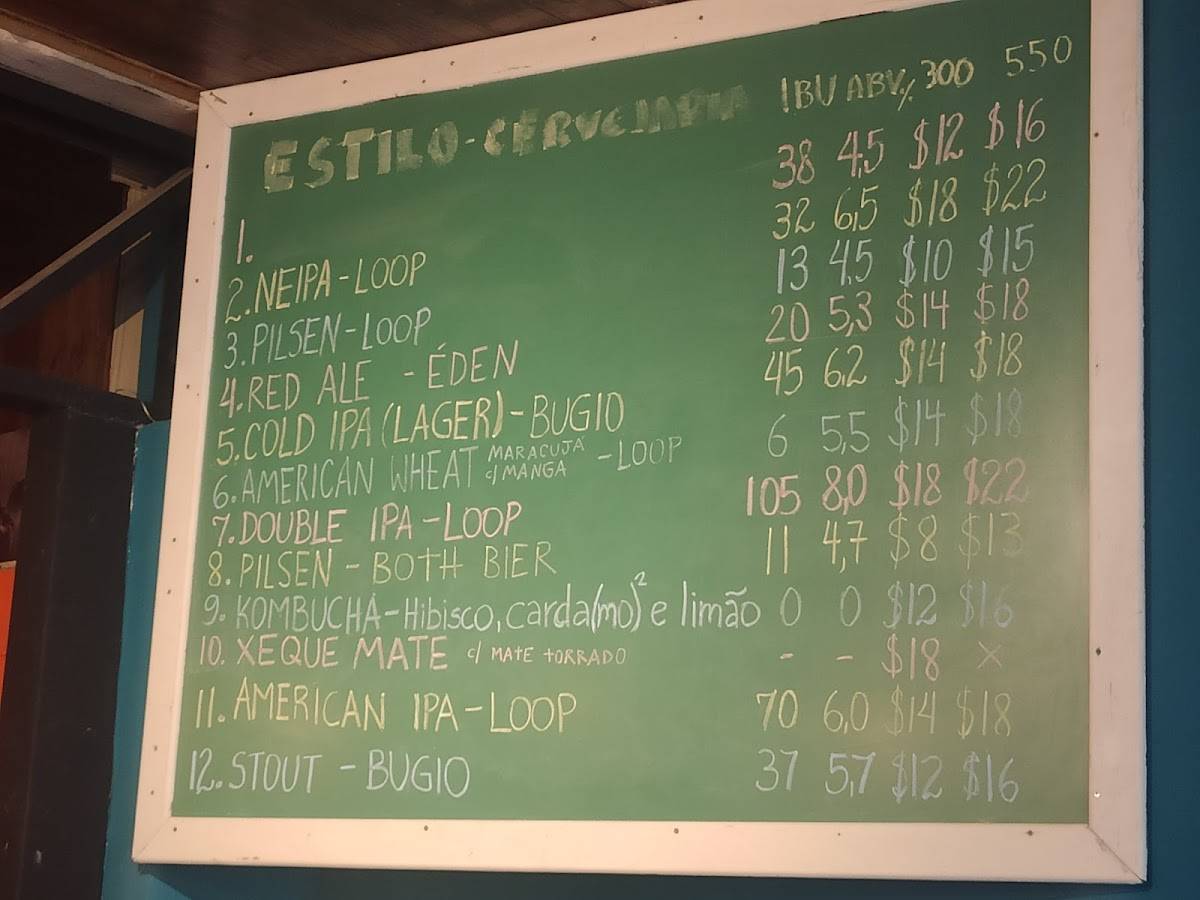 ESTILO-CERVEJARIA IBU ABV% 300 550
1. 38 4,5 $12 $16
2. NEIPA-LOOP 32 6,5 $18 $22
3. PILSEN-LOOP 13 4,5 $10 $15
4. RED ALE - ÉDEN 20 5,3 $14 $18
5. COLD IPA (LAGER)-BUGIO 45 6,2 $14 $18
6. AMERICAN WHEAT MARACUJÁ c/MANGA - LOOP 6 5,5 $14 $18
7. DOUBLE IPA-LOOP 105 8,0 $18 $22
8. PILSEN - BOTH BIER 11 4,7 $8 $13
9. KOMBUCHA-Hibisco, carda(mo)² e limão 0 0 $12 $16
10. XEQUE MATE c/ MATE TORRADO - - $18 X
11. AMERICAN IPA-LOOP 70 6,0 $14 $18
12. STOUT - BUGIO 37 5,7 $12 $16